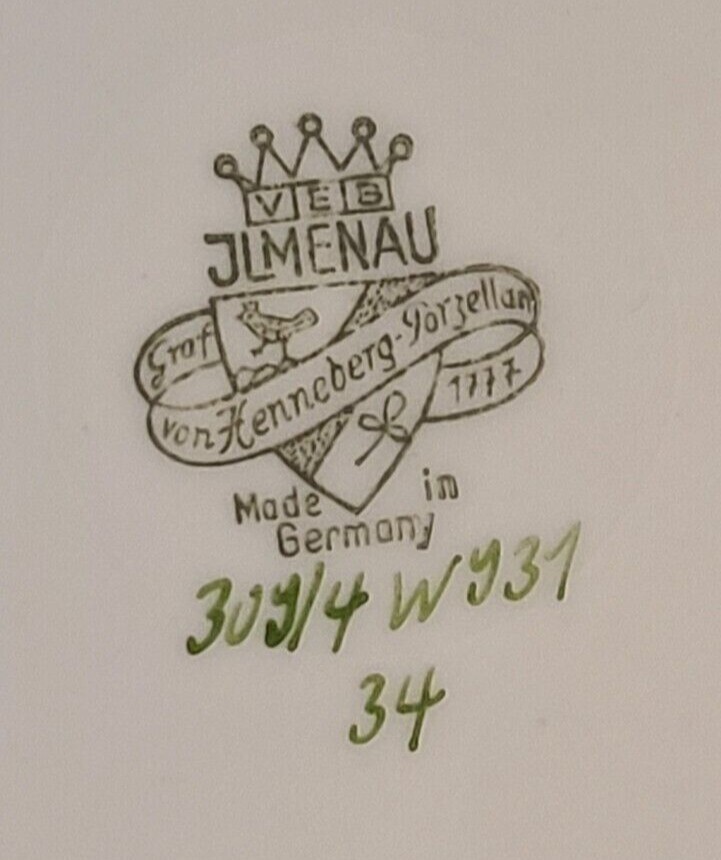 VEB
JLMENAU
Graf
von Henneberg-Porzellan
1777
Made in
Germany
309/4 W 931
34